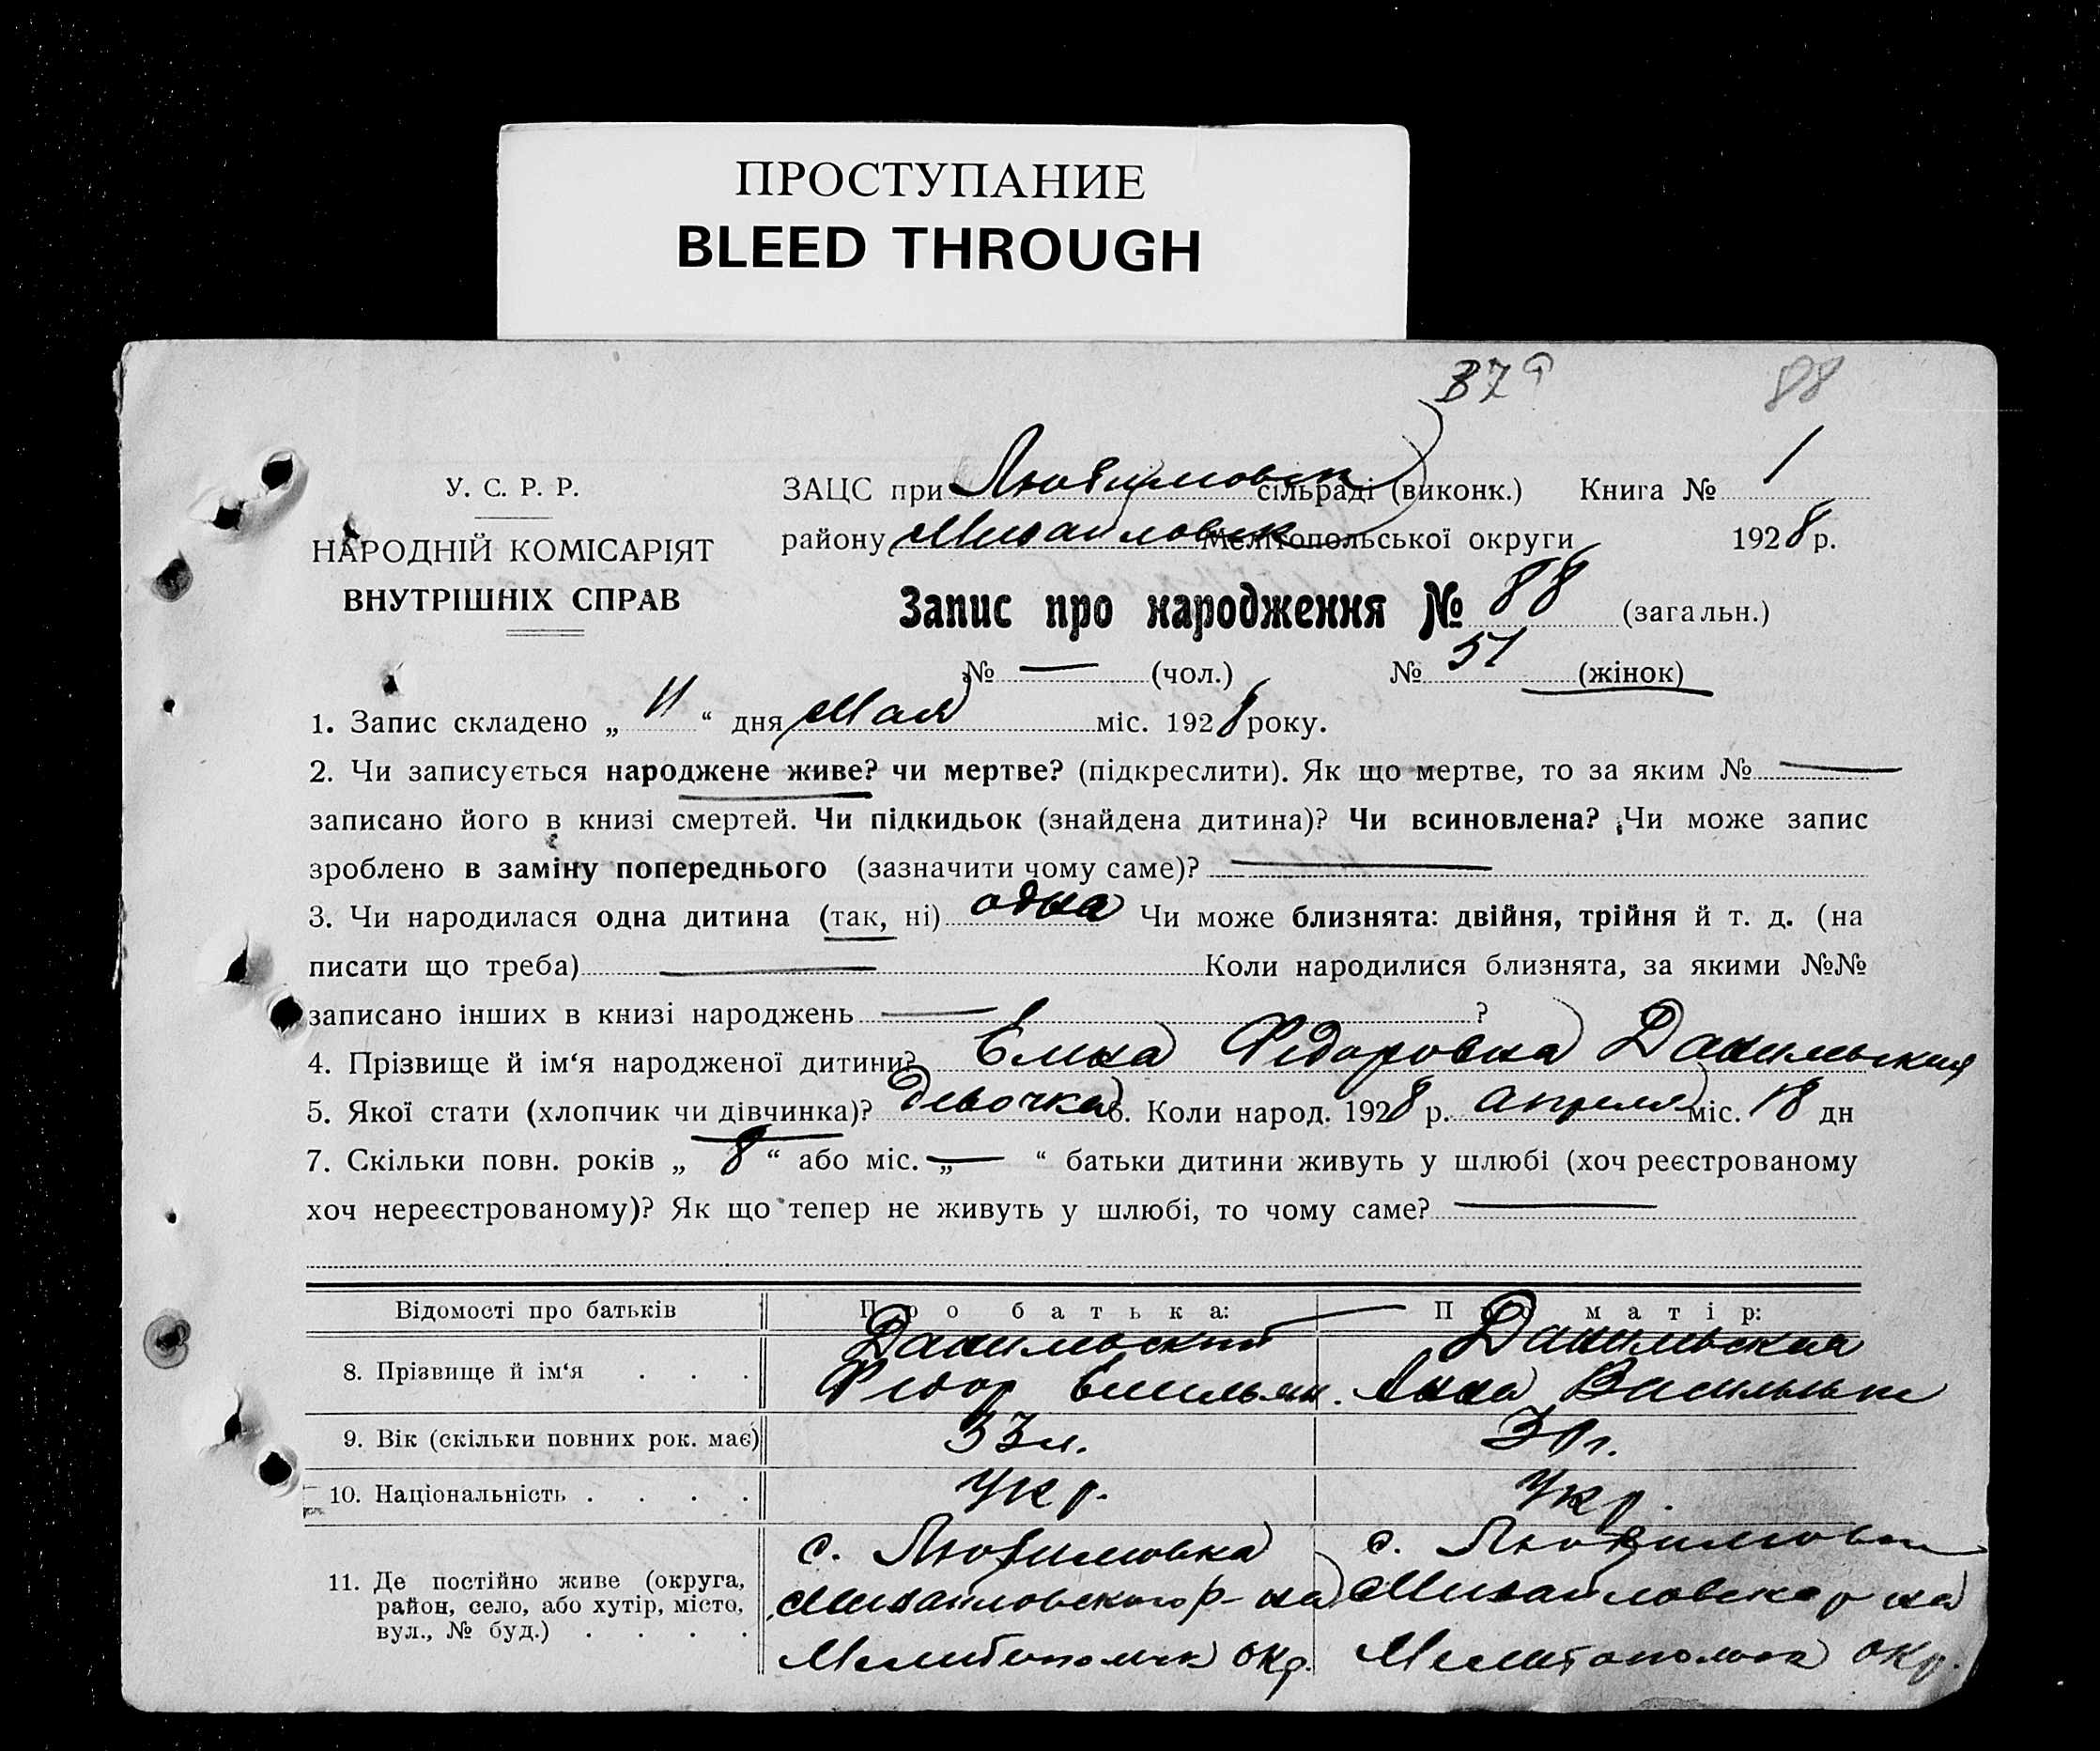 ПРОСТУПАНИЕ
BLEED THROUGH
88
У. С. Р. Р.
НАРОДНІЙ КОМІСАРІЯТ
ВНУТРІШНІХ СПРАВ
ЗАЦС при Любимовск сільраді (виконк.) Книга № 1
району Михайловск Мелітопольської округи 1928 р.
Запис про народження № 88 (загальн.)
№ — (чол.) № 51 (жінок)
1. Запис складено „ 11 “ дня Мая міс. 1928 року.
2. Чи записується народжене живе? чи мертве? (підкреслити). Як що мертве, то за яким № —
записано його в книзі смертей. Чи підкидьок (знайдена дитина)? Чи всиновлена? Чи може запис
зроблено в заміну попереднього (зазначити чому саме)? —
3. Чи народилася одна дитина (так, ні) одна Чи може близнята: двійня, трійня й т. д. (на
писати що треба) — Коли народилися близнята, за якими №№
записано інших в книзі народжень — ?
4. Прізвище й ім‘я народженої дитини? Фідоровна Данильская
5. Якої стати (хлопчик чи дівчинка)? девочка 6. Коли народ. 1928 р. апреля міс. 18 дн
7. Скільки повн. років „ 8 “ або міс. „ — “ батьки дитини живуть у шлюбі (хоч реєстрованому
хоч нереєстрованому)? Як що тепер не живуть у шлюбі, то чому саме? —
Відомості про батьків Про батька: Про матір:
8. Прізвище й ім‘я . . . Данильский Данильская
Фідор Емильян. Анна Васильевн
9. Вік (скільки повних рок. має) 33 л. 30 л.
10. Національність . . . . Укр. Укр.
11. Де постійно живе (округа, район, село, або хутір, місто, вул., № буд.) . . . .
с. Любимовка с. Любимовка
Михайловского р-на Михайловск р на
Мелитопольск окр. Мелитопольск окр.